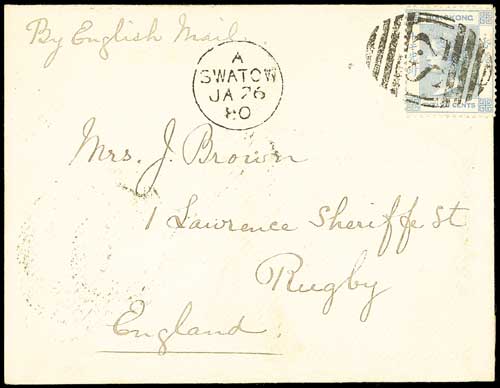 By English Mail.
HONG KONG
A
SWATOW
JA 26
80
S2
CENTS
Mrs. J. Brown
1 Lawrence Sheriffe St
Rugby
England.